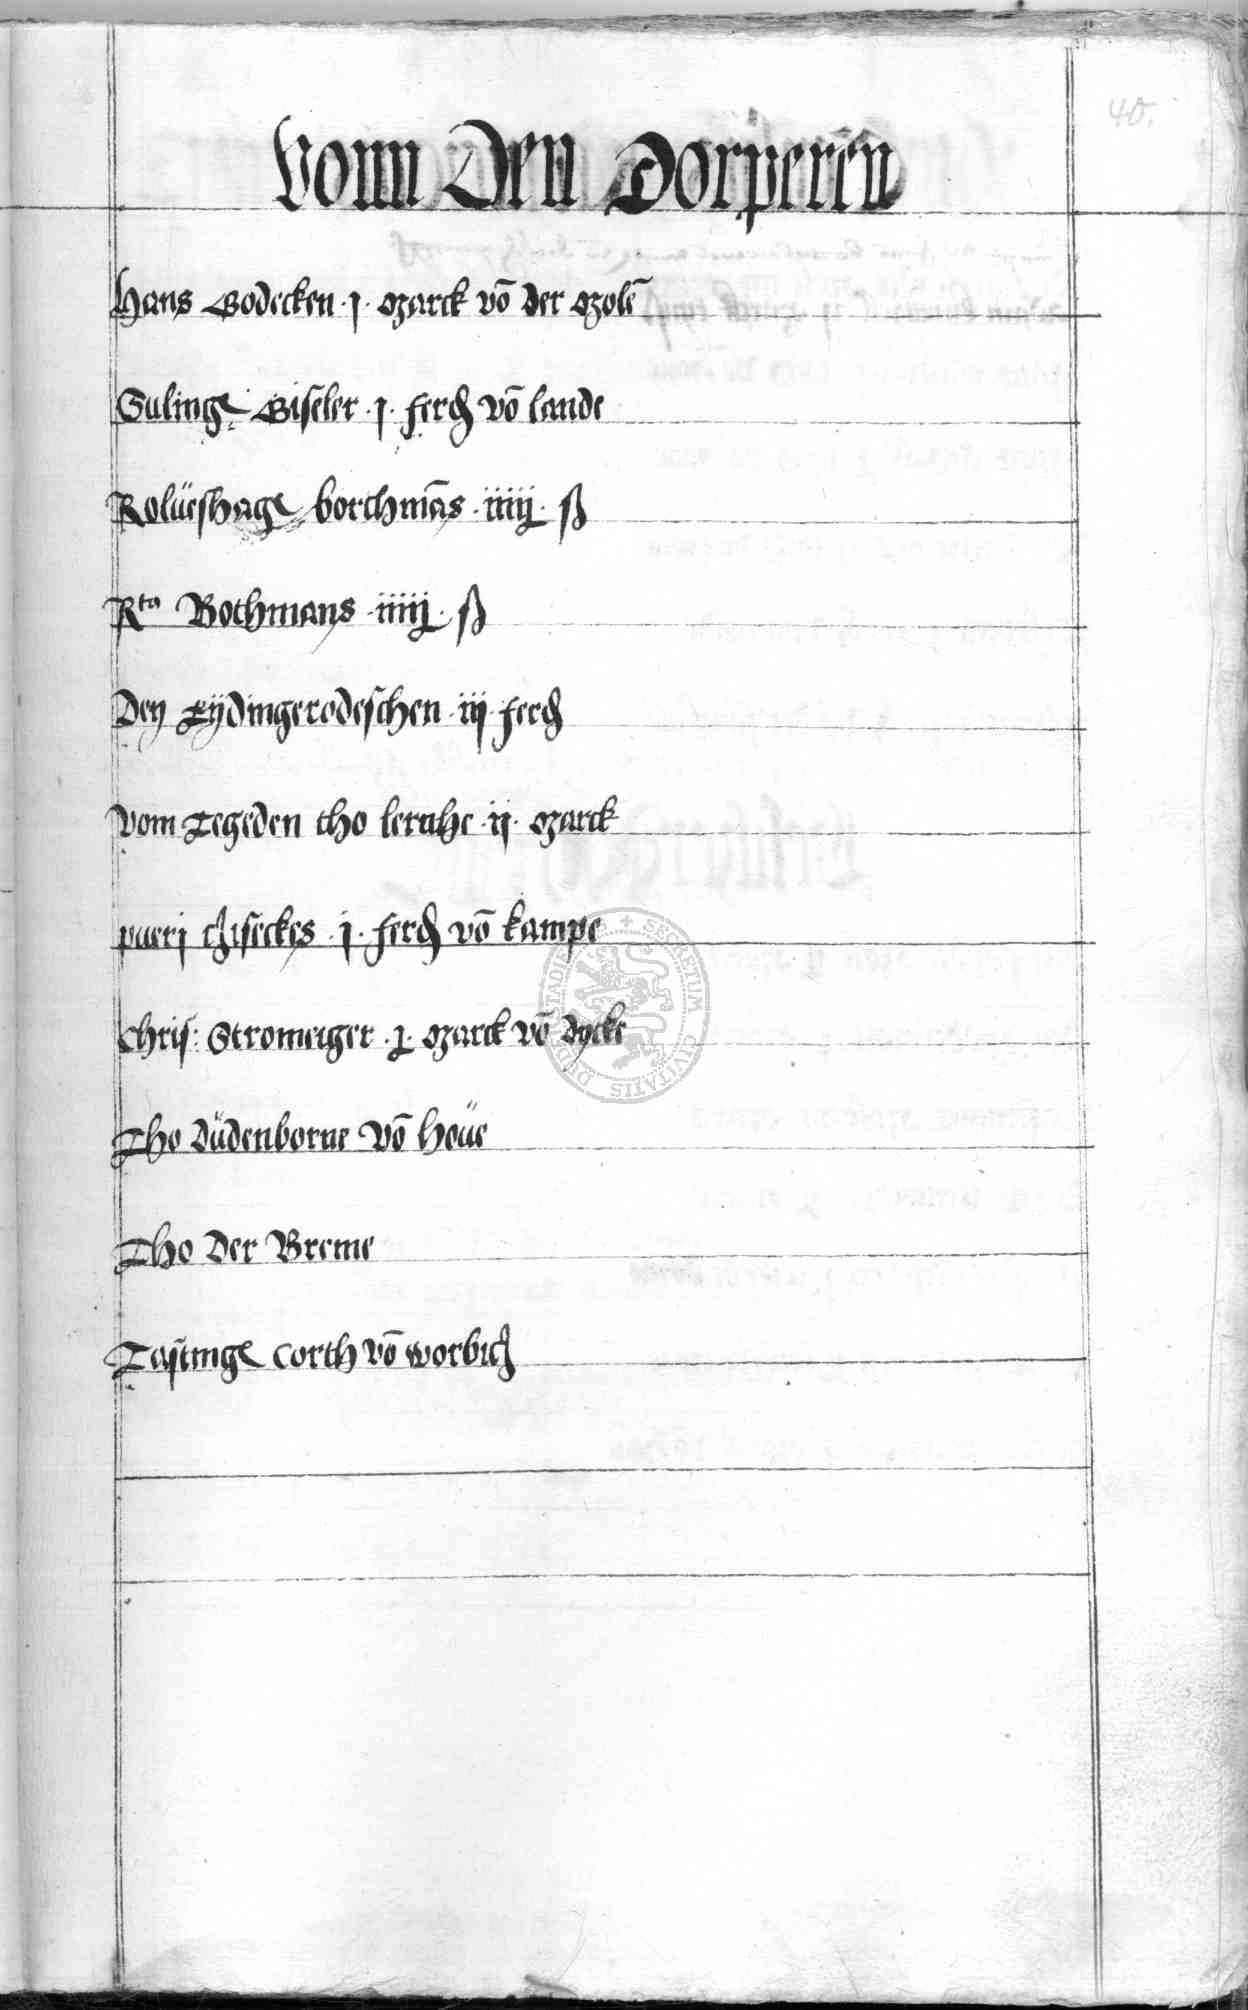 40.
Vonn Den Dorperen
Hans Bodecken · j · marck võ der molẽ
Sulinge Giseler · j · ferd võ lande
Rolüeshage borchmãs · iiiij · ß
Rta Bothmans · iiiij · ß
Den Eÿdingerodeschen · iij · ferd
Vom Tegeden tho lernhe · ij · marck
pueri Hiseckes · j · ferd võ kampe
Chris: Stromeiger · j · marck võ dycke
Tho düdenborne võ hoüe
Tho der Breme
Tastinge Corth võ worbich
SECRETUM CIVITATIS DUDERSTADIENSIS